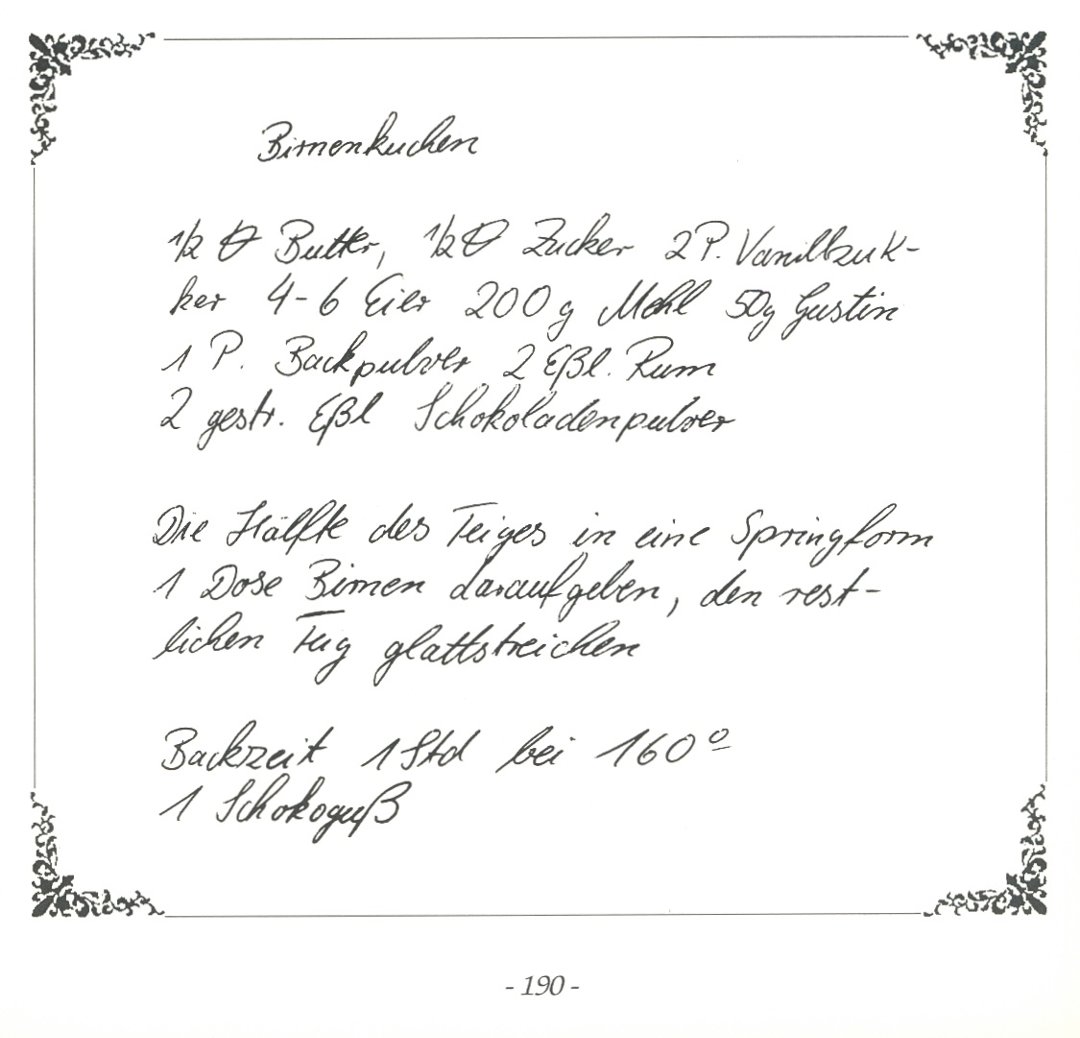 Birnenkuchen
1/2 ℔ Butter, 1/2 ℔ Zucker 2 P. Vanillzuk-
ker 4-6 Eier 200 g Mehl 50g Gustin
1 P. Backpulver 2 Eßl. Rum
2 gestr. Eßl Schokoladenpulver
Die Hälfte des Teiges in eine Springform
1 Dose Birnen daraufgeben, den rest-
lichen Teig glattstreichen
Backzeit 1 Std bei 160°
1 Schokoguß
- 190 -